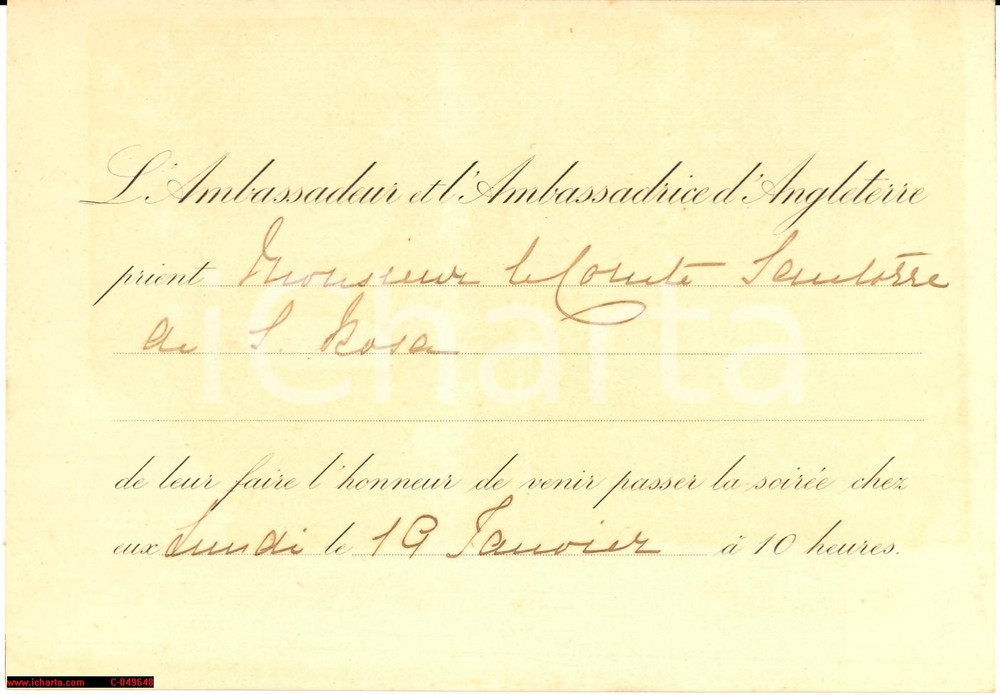 L'Ambassadeur et l'Ambassadrice d'Angleterre
prient Monsieur le Comte Santorre
de S. Rosa
iCharta
de leur faire l'honneur de venir passer la soirée chez
eux Lundi le 19 Janvier à 10 heures.
www.icharta.com C-049648